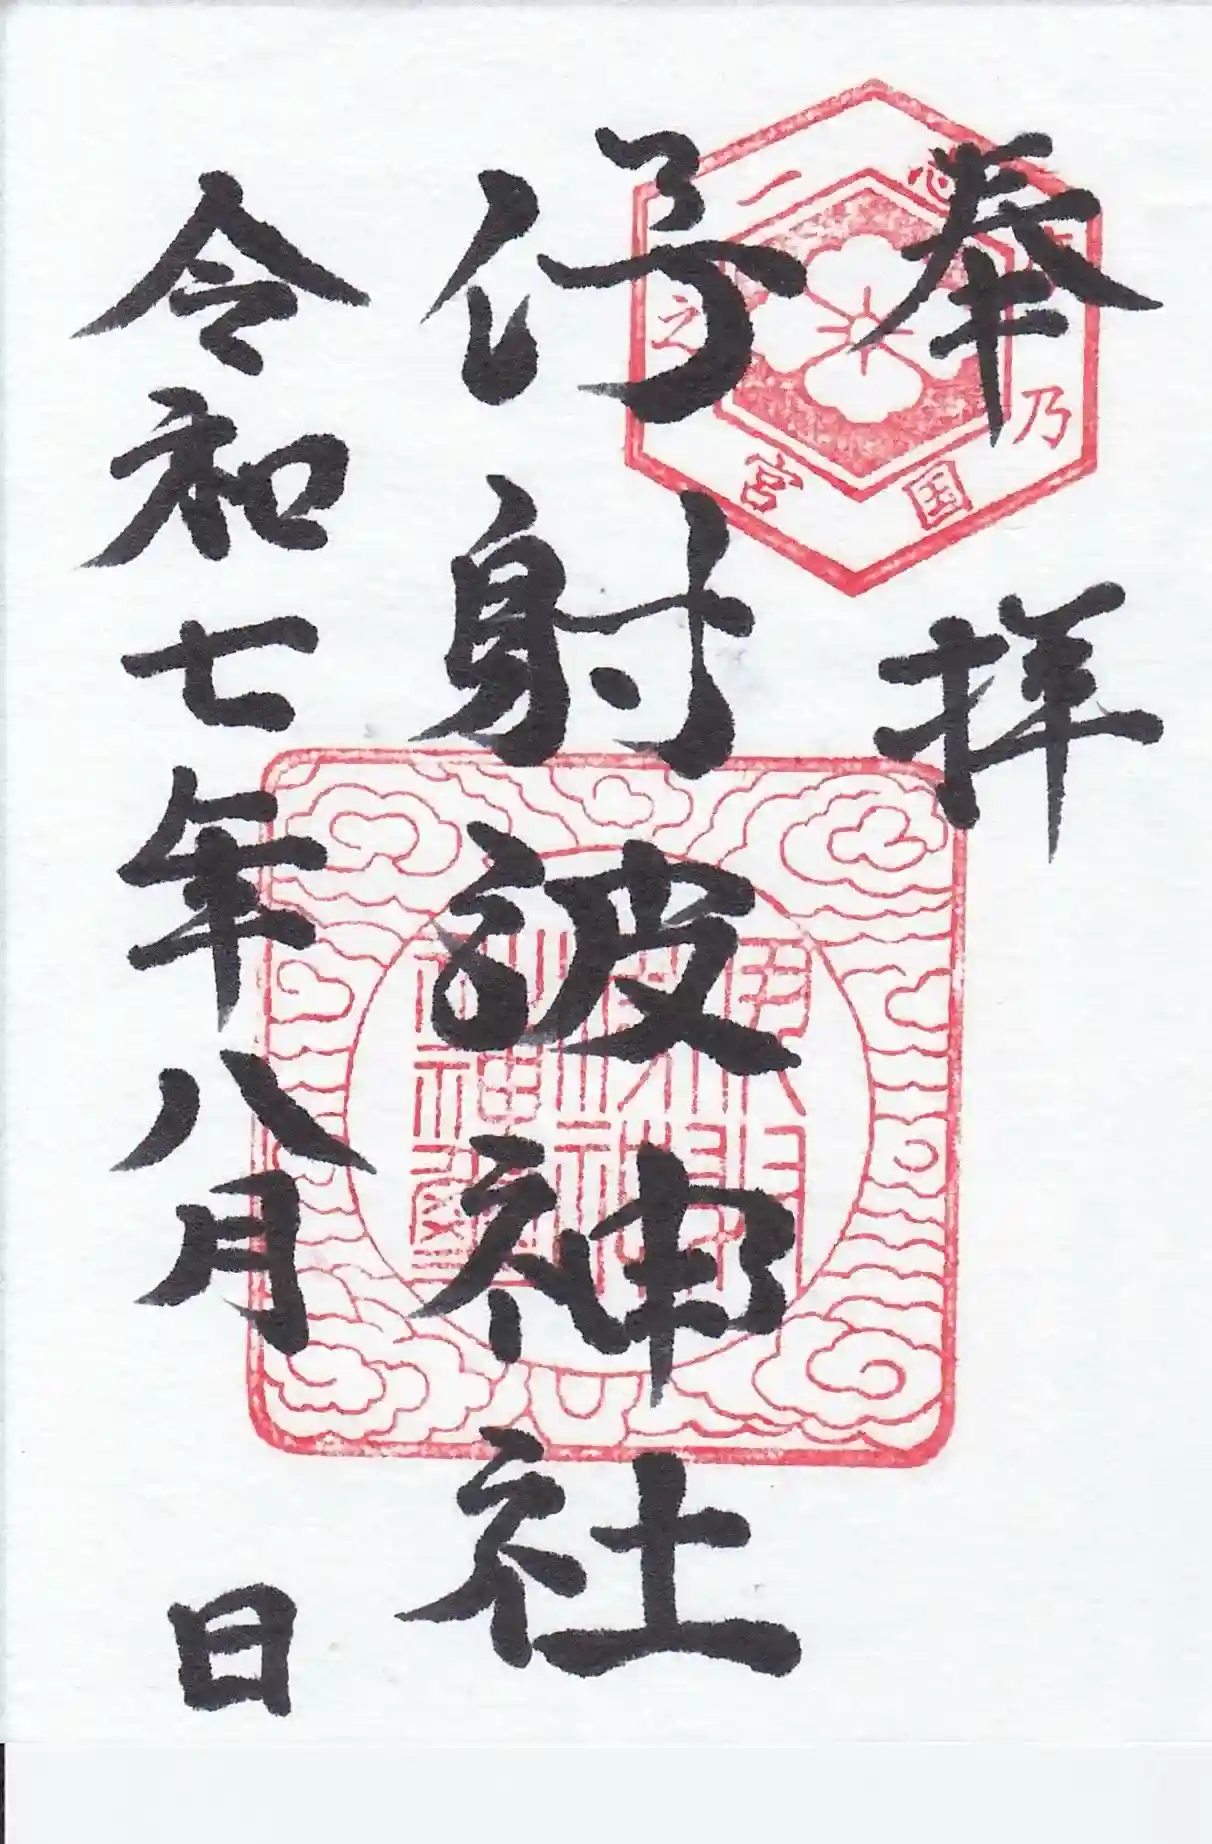 奉拝
志摩乃国
一之宮
伊射波神社
令和七年八月 日